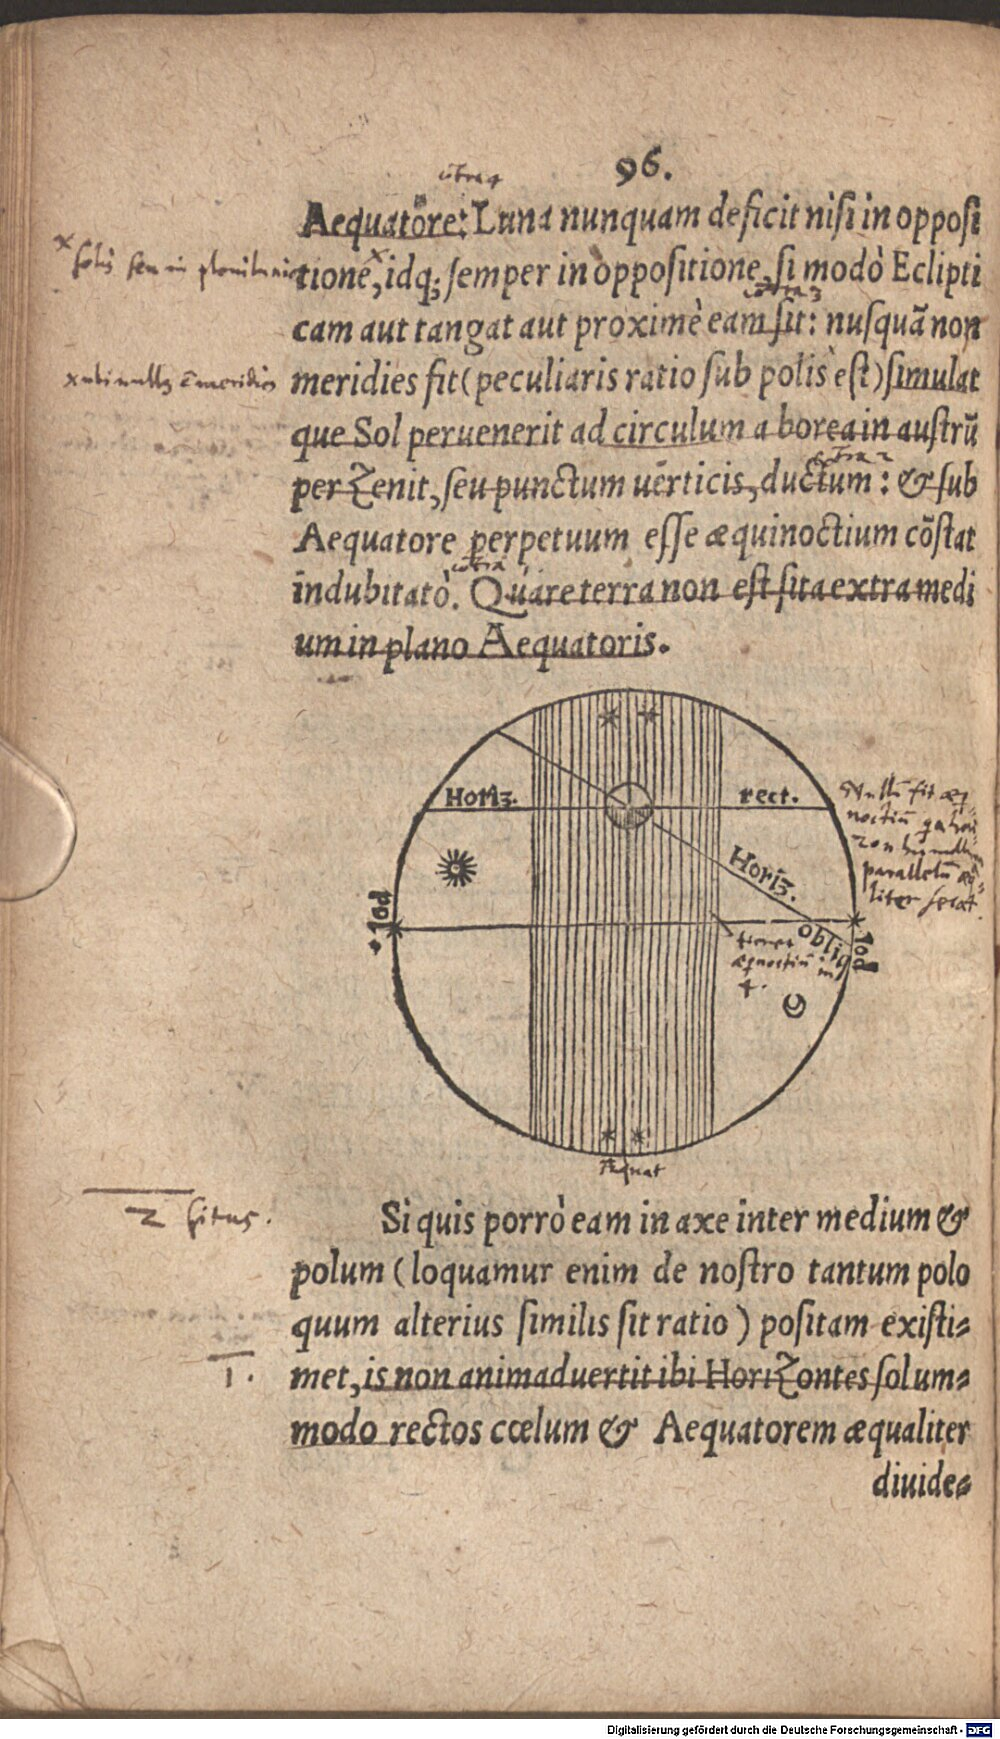 96.
Aequatore: Luna nunquam deficit nisi in opposi
tione, idq; semper in oppositione, si modò Eclipti
cam aut tangat aut proximè eam sit: nusquã non
meridies fit (peculiaris ratio sub polis est) simulat
que Sol peruenerit ad circulum a borea in austrũ
per Zenit, seu punctum uerticis, ductum: & sub
Aequatore perpetuum esse æquinoctium cõstat
indubitatò. Quare terra non est sita extra medi
um in plano Aequatoris.
Horiz. rect.
Horiz.
obliq
Pol
Pol
Aequat
2 situs.
Si quis porrò eam in axe inter medium &
polum (loquamur enim de nostro tantum polo
quum alterius similis sit ratio) positam existi⸗
1.
met, is non animaduertit ibi Horizontes solum⸗
modo rectos cœlum & Aequatorem æqualiter
diuide⸗
Digitalisierung gefördert durch die Deutsche Forschungsgemeinschaft - DFG